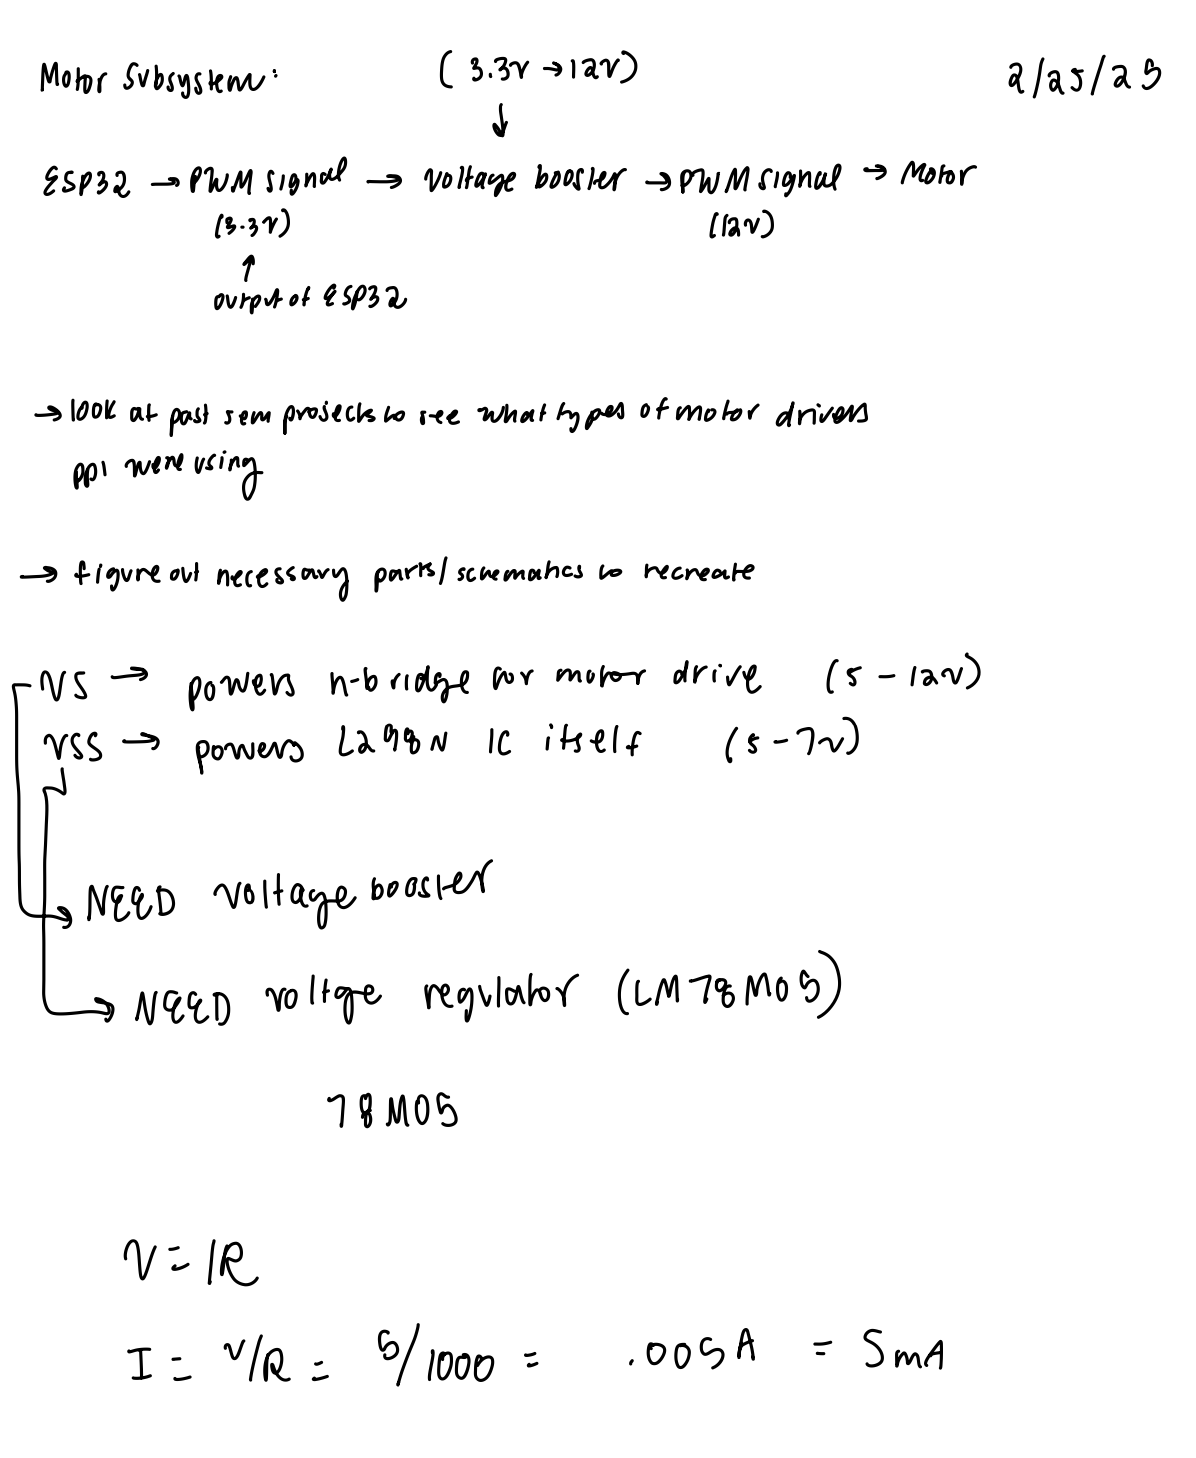 Motor Subsystem: (3.3V → 12V) 2/25/25
↓
ESP32 → PWM signal → Voltage booster → PWM signal → Motor
(3.3V) (12V)
↑
output of ESP32
→ look at past sem projects to see what types of motor drivers
ppl were using
→ figure out necessary parts/schematics to recreate
VS → powers h-bridge for motor drive (5-12V)
VSS → powers L298N IC itself (5-7V)
→ NEED voltage booster
→ NEED voltge regulator (LM78M05)
78M05
V = IR
I = V/R = 5/1000 = .005A = 5mA